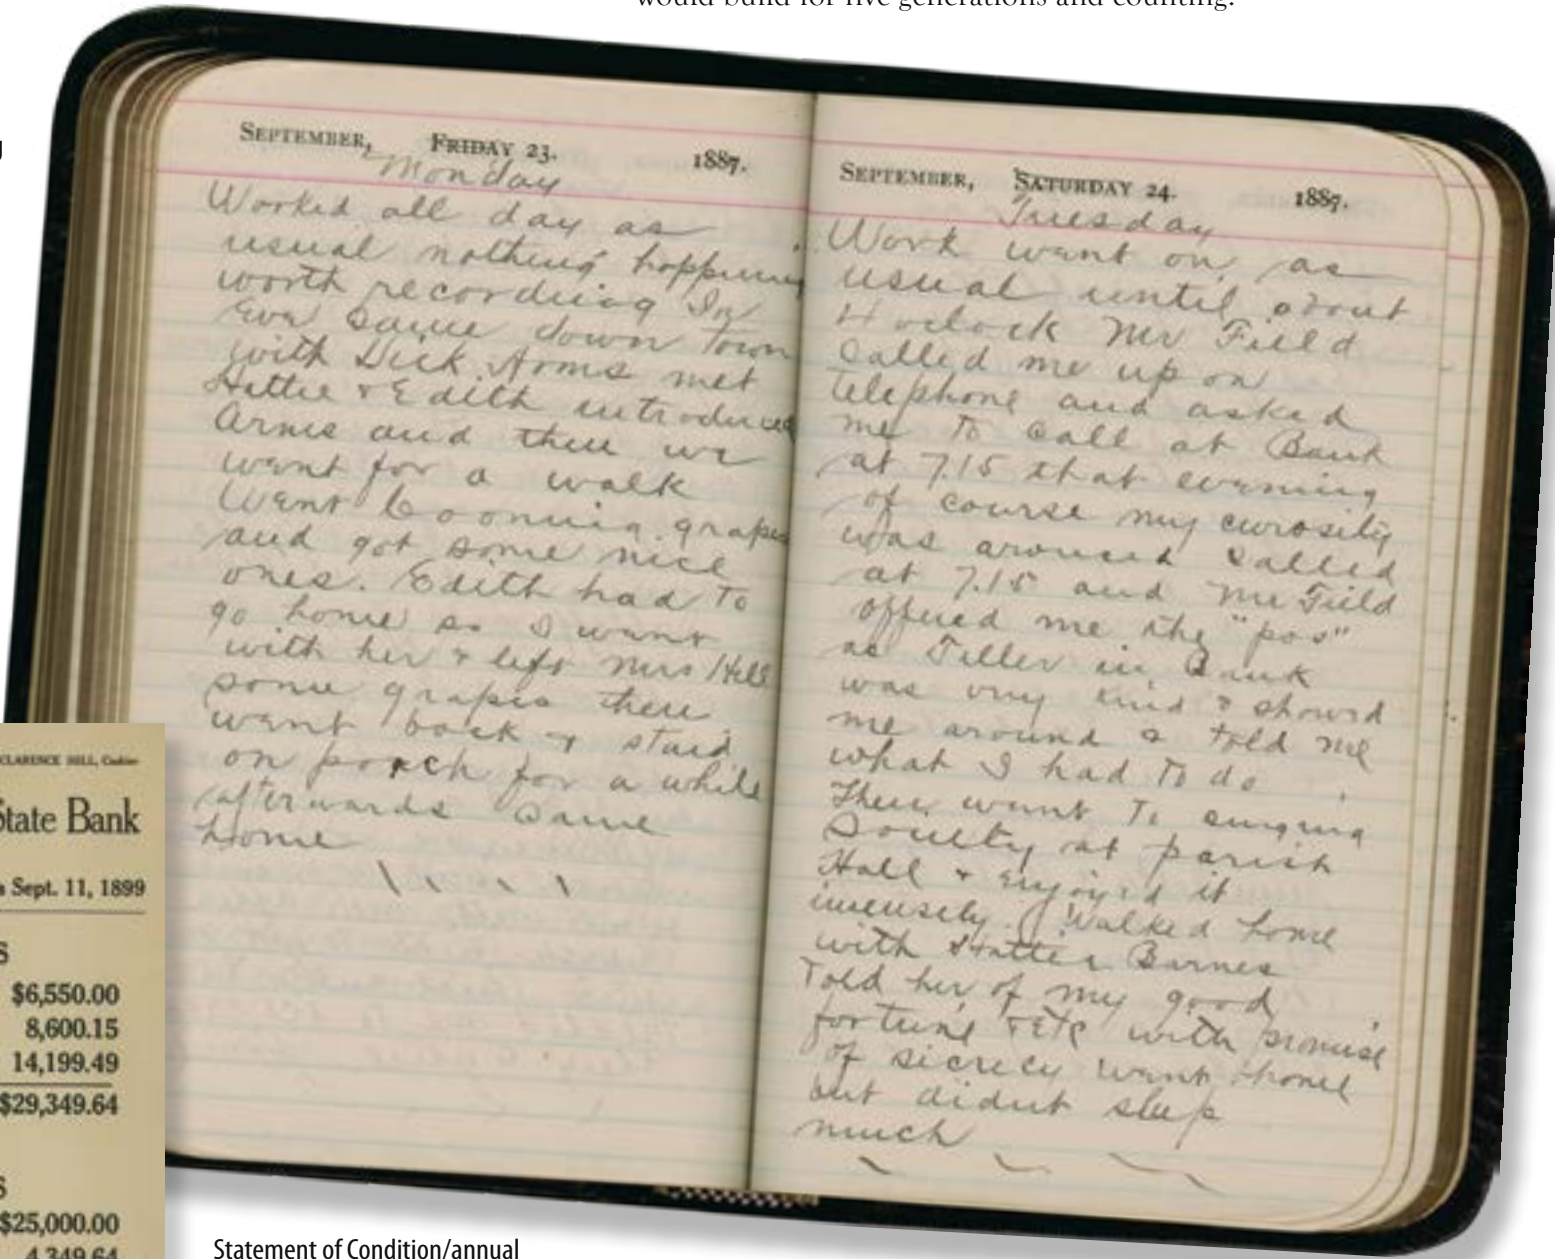 would build for five generations and counting.
SEPTEMBER, FRIDAY 23. 1887.
Monday
Worked all day as
usual nothing happening
worth recording In
Eve came down town
with Dick Arms met
Hattie & Edith introduced
Arms and then we
went for a walk
Went Cooning grapes
and got some nice
ones. Edith had to
go home so I went
with her & left Mrs Hill
some grapes then
went back & staid
on porch for a while
afterwards came
home
SEPTEMBER, SATURDAY 24. 1887.
Tuesday
Work went on as
usual until about
4 oclock Mr Field
called me up on
telephone and asked
me to call at Bank
at 7.15 that evening
of course my curosity
was aroused called
at 7.15 and Mr Field
offered me the "pos"
as Teller in Bank
was very kind & showed
me around & told me
what I had to do
Then went to singing
Society at parish
Hall & enjoyed it
imensely. Walked home
with Hattie Barnes
Told her of my good
fortune &etc with promise
of sicrecy went home
but didnt sleep
much
CLARENCE HILL, Cashier
State Bank
Sept. 11, 1899
$6,550.00
8,600.15
14,199.49
$29,349.64
$25,000.00
4,349.64
Statement of Condition/annual